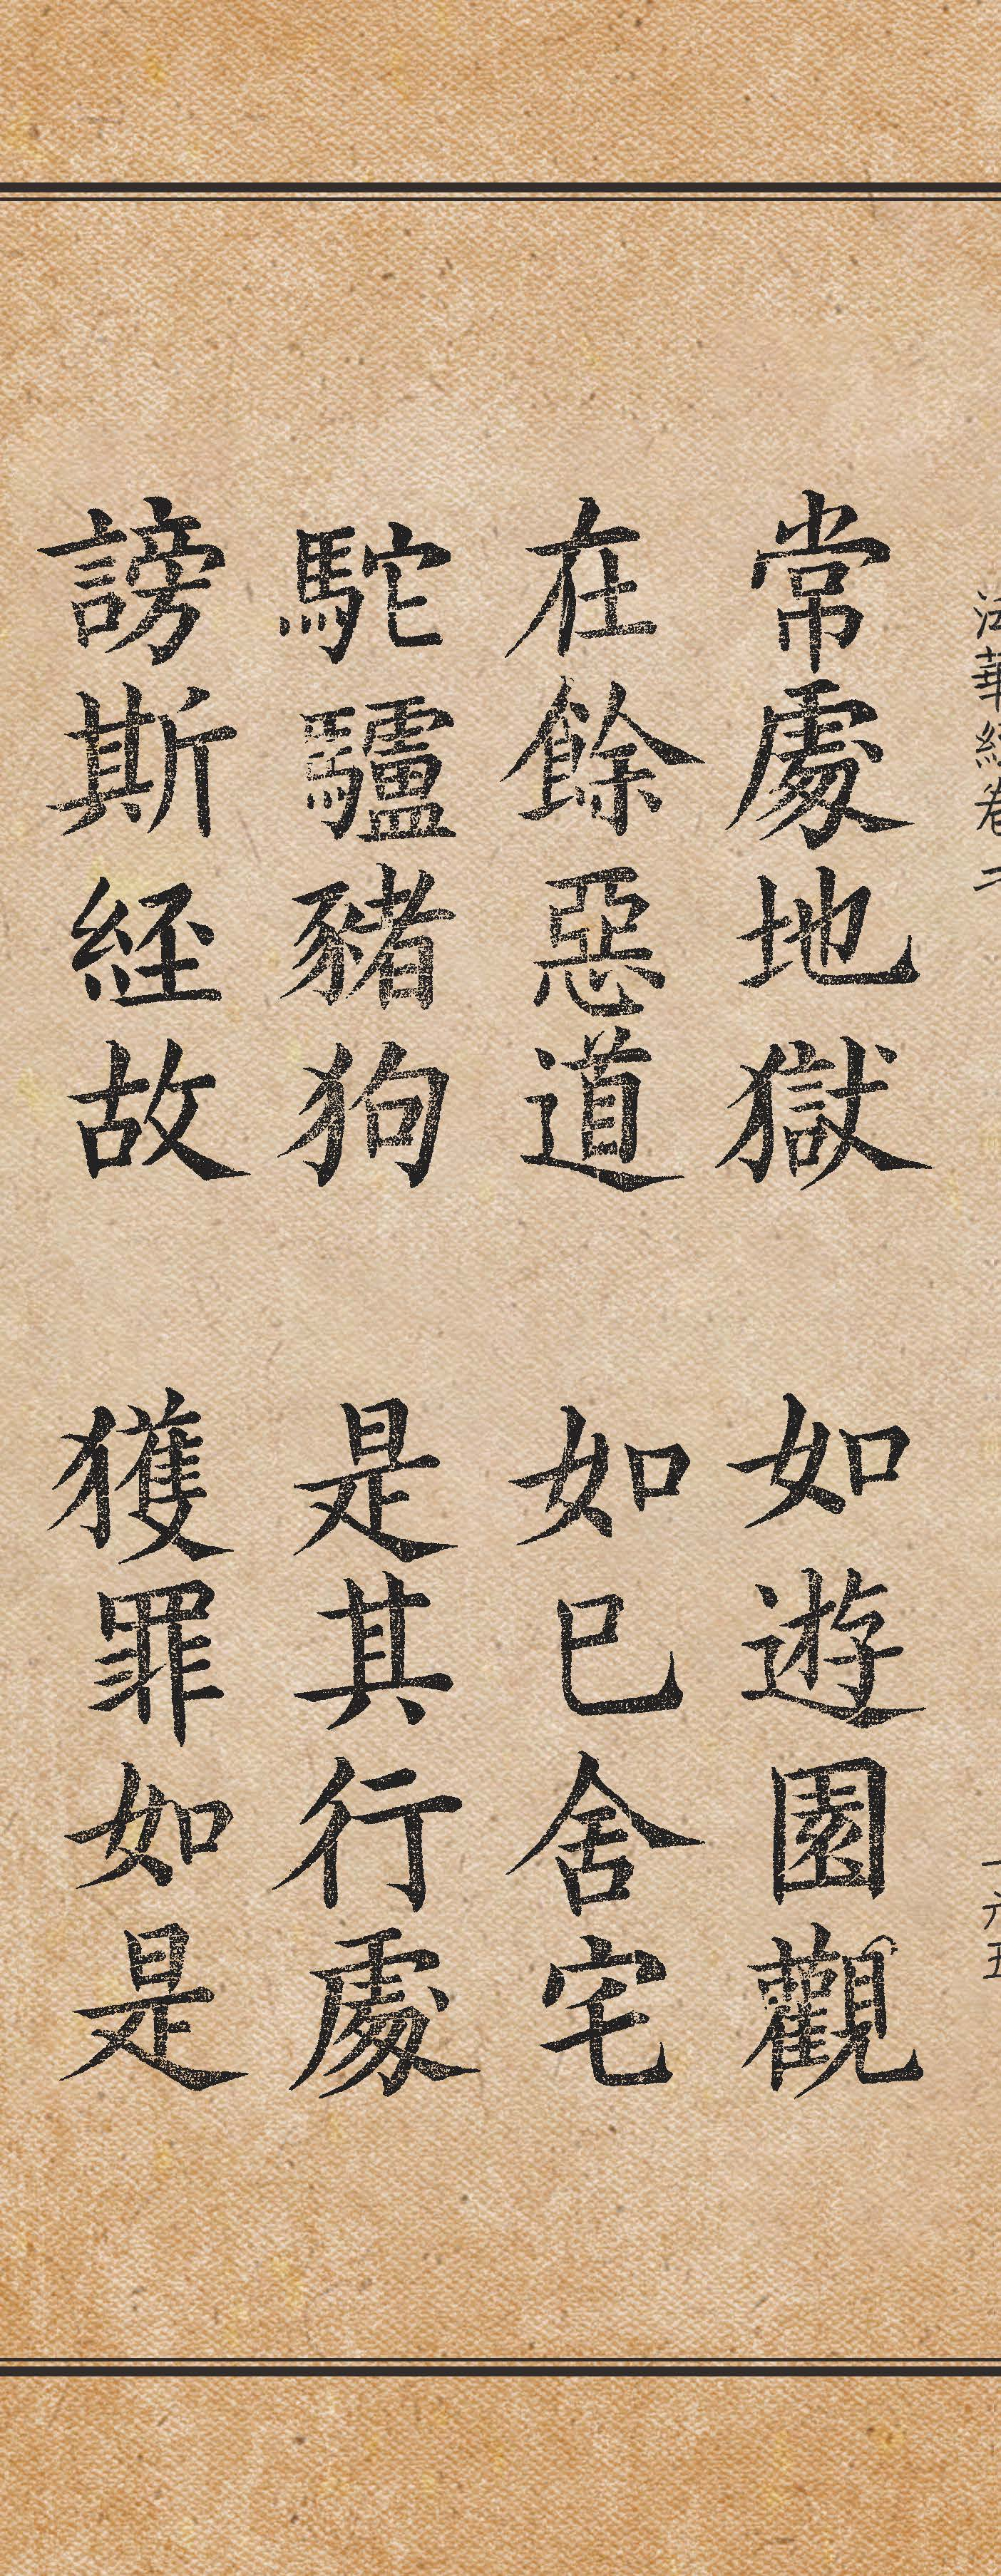 常處地獄 如遊園觀
在餘惡道 如已舍宅
駝驢豬狗 是其行處
謗斯經故 獲罪如是